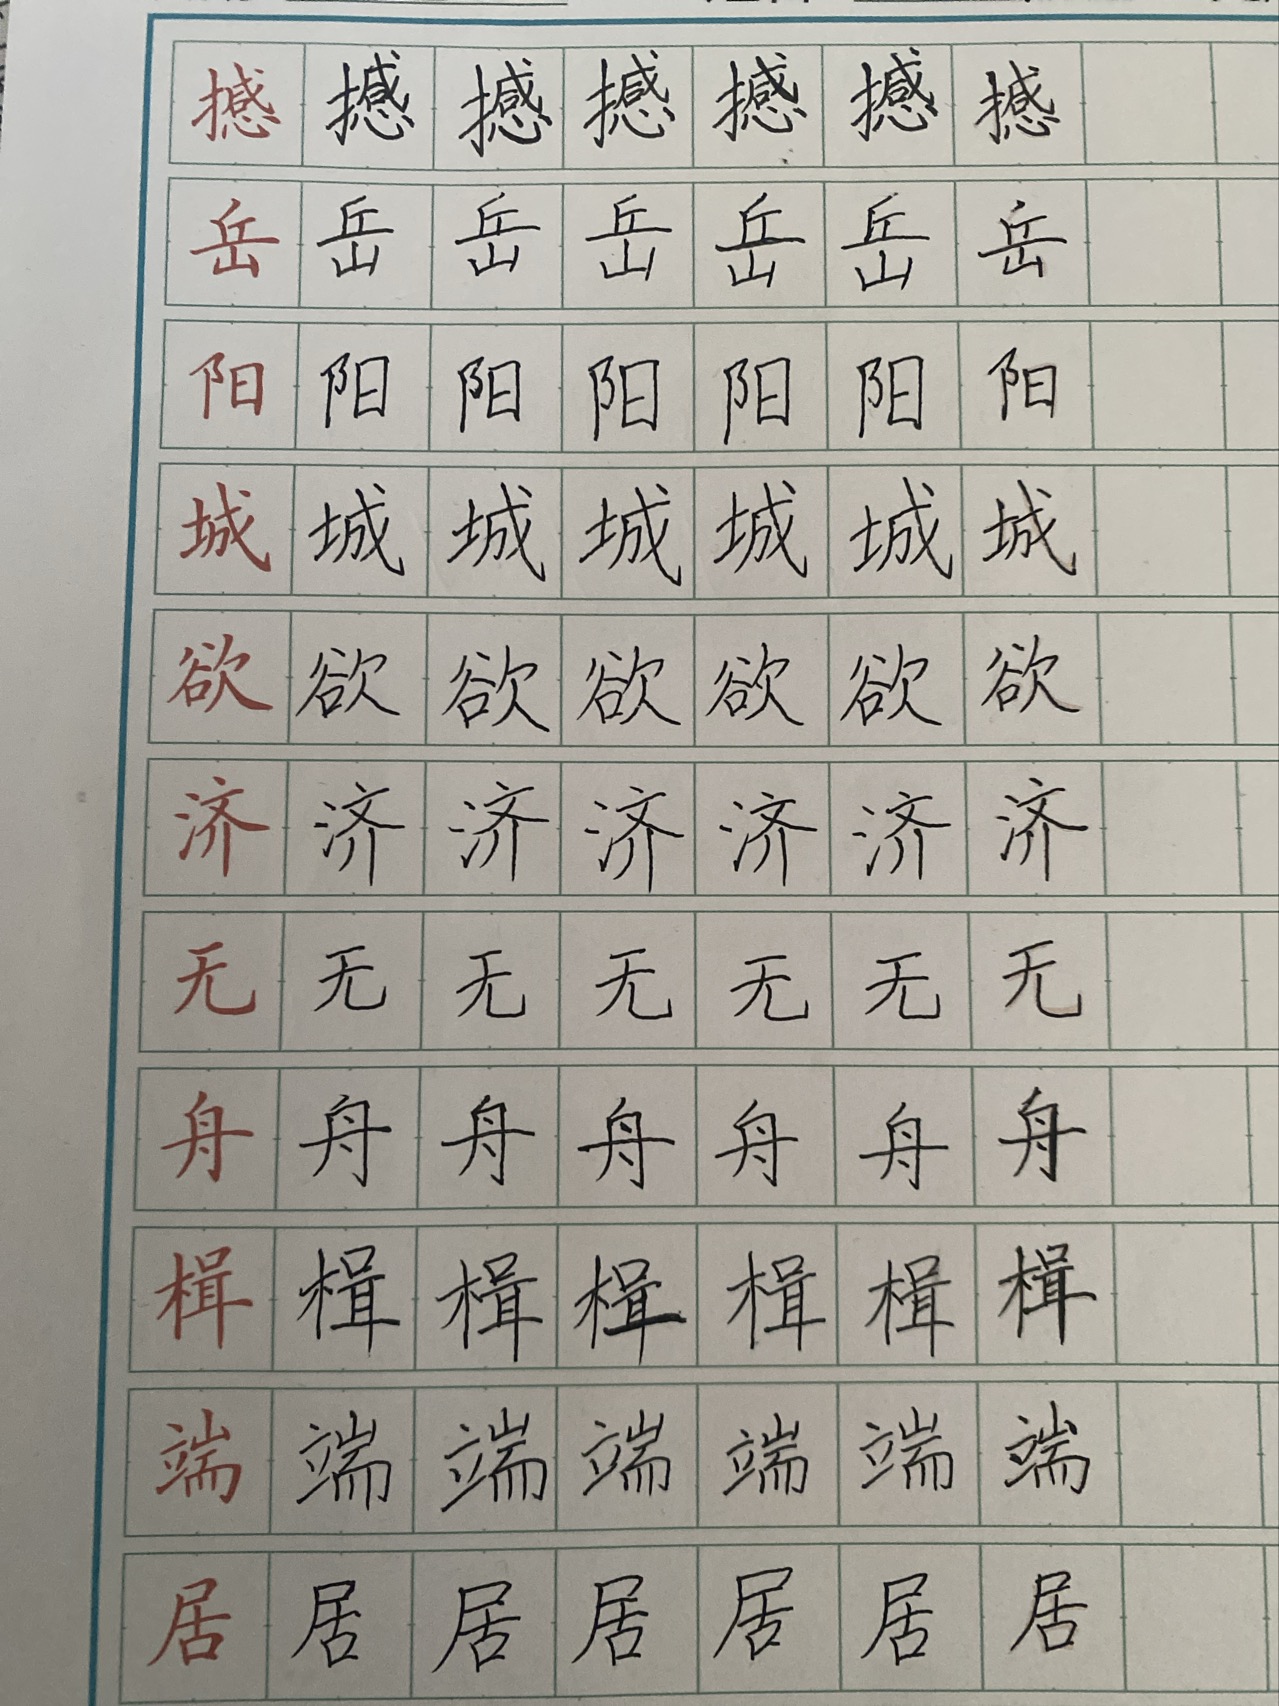 撼撼撼撼撼撼撼
岳岳岳岳岳岳岳
阳阳阳阳阳阳阳
城城城城城城城
欲欲欲欲欲欲欲
济济济济济济济
无无无无无无无
舟舟舟舟舟舟舟
楫楫楫楫楫楫楫
端端端端端端端
居居居居居居居